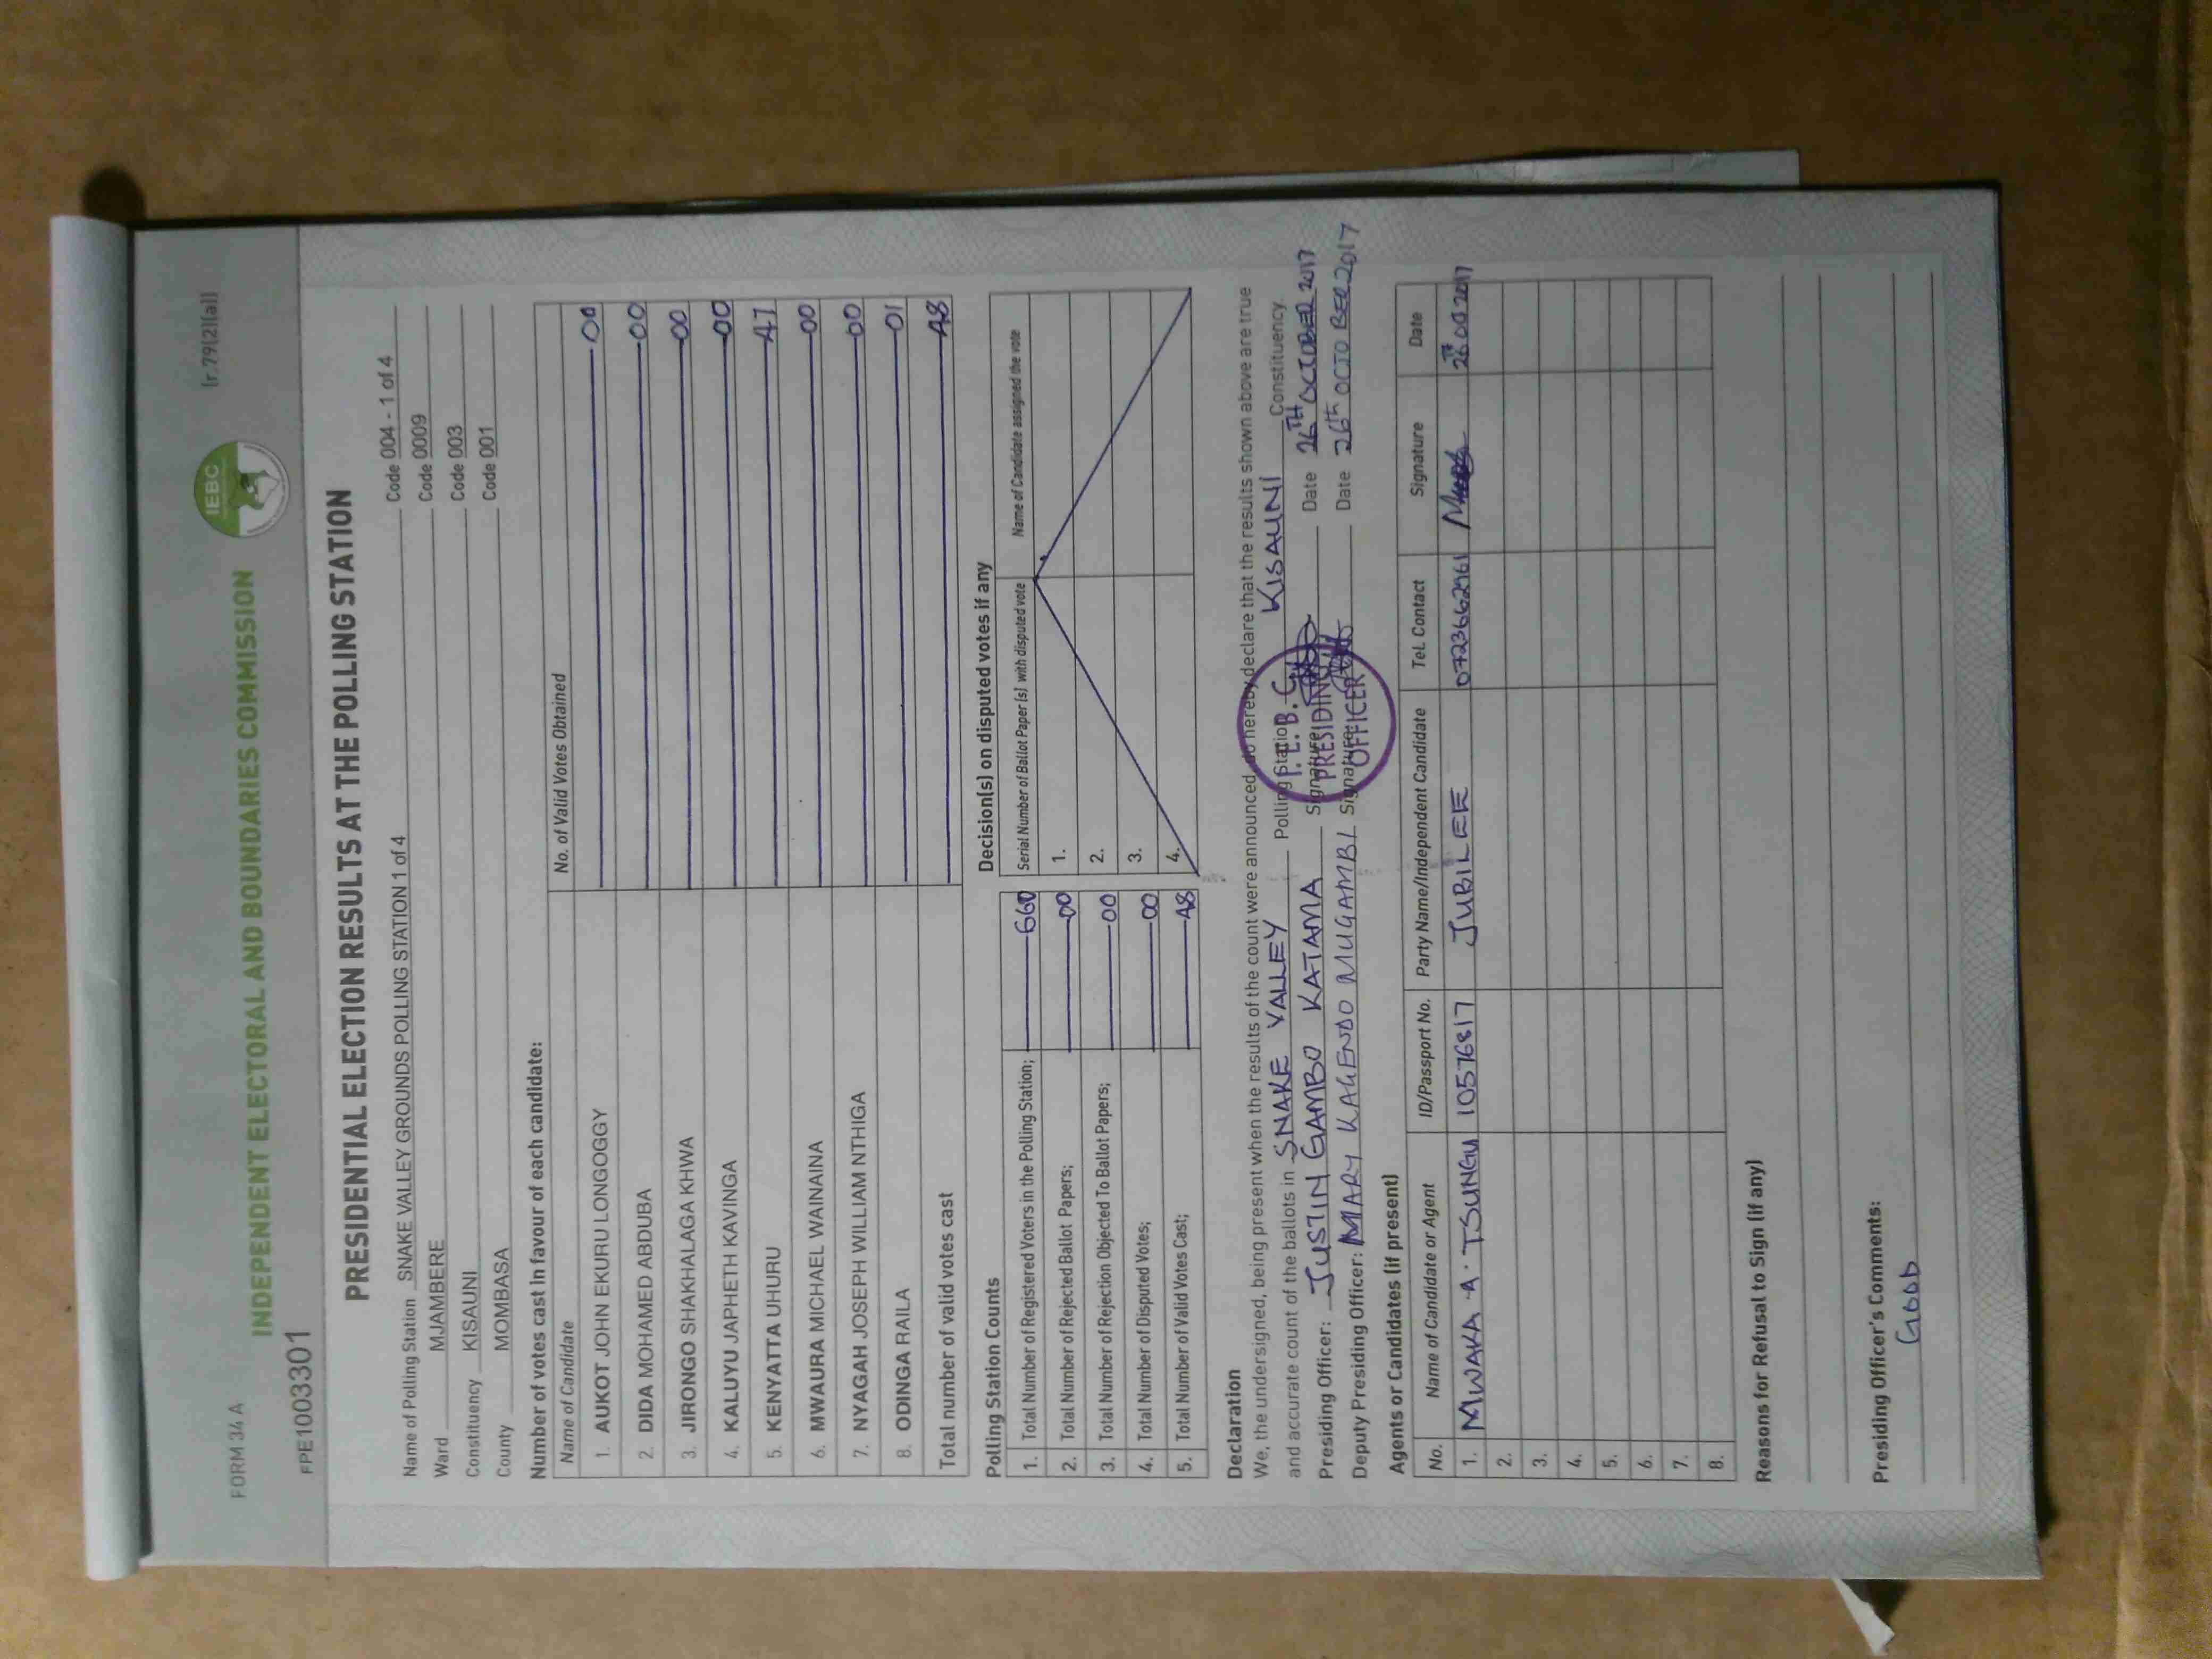 FORM 34 A
[r.79(2)(a)]
IEBC
INDEPENDENT ELECTORAL AND BOUNDARIES COMMISSION
PPE1003301
PRESIDENTIAL ELECTION RESULTS AT THE POLLING STATION
Name of Polling Station SNAKE VALLEY GROUNDS POLLING STATION 1 of 4 Code 004 - 1 of 4
Ward MJAMBERE Code 0009
Constituency KISAUNI Code 003
County MOMBASA Code 001
Number of votes cast in favour of each candidate:
Name of Candidate No. of Valid Votes Obtained
1. AUKOT JOHN EKURU LONGOGGY 00
2. DIDA MOHAMED ABDUBA 00
3. JIRONGO SHAKHALAGA KHWA 00
4. KALUYU JAPHETH KAVINGA 00
5. KENYATTA UHURU 47
6. MWAURA MICHAEL WAINAINA 00
7. NYAGAH JOSEPH WILLIAM NTHIGA 00
8. ODINGA RAILA 01
Total number of valid votes cast 48
Polling Station Counts
1. Total Number of Registered Voters in the Polling Station; 660
2. Total Number of Rejected Ballot Papers; 00
3. Total Number of Rejection Objected To Ballot Papers; 00
4. Total Number of Disputed Votes; 00
5. Total Number of Valid Votes Cast; 48
Decision(s) on disputed votes if any
Serial Number of Ballot Paper (s) with disputed vote Name of Candidate assigned the vote
1.
2.
3.
4.
Declaration
We, the undersigned, being present when the results of the count were announced, do hereby declare that the results shown above are true
and accurate count of the ballots in SNAKE VALLEY Polling Station KISAUNI Constituency
Presiding Officer: JUSTIN GAMBO KATAMA Signature: Date 26TH OCTOBER 2017
Deputy Presiding Officer: MARY KAGENDO MUGAMBI Signature: Date 26th OCTOBER 2017
I.E.B.C.
PRESIDING
OFFICER
Agents or Candidates (if present)
No. Name of Candidate or Agent ID/Passport No. Party Name/Independent Candidate Tel. Contact Signature Date
1. MWAKA A. TSUNGU 10576817 JUBILEE 0723662961
2.
3.
4.
5.
6.
7.
8.
Reasons for Refusal to Sign (if any)
Presiding Officer's Comments:
GOOD